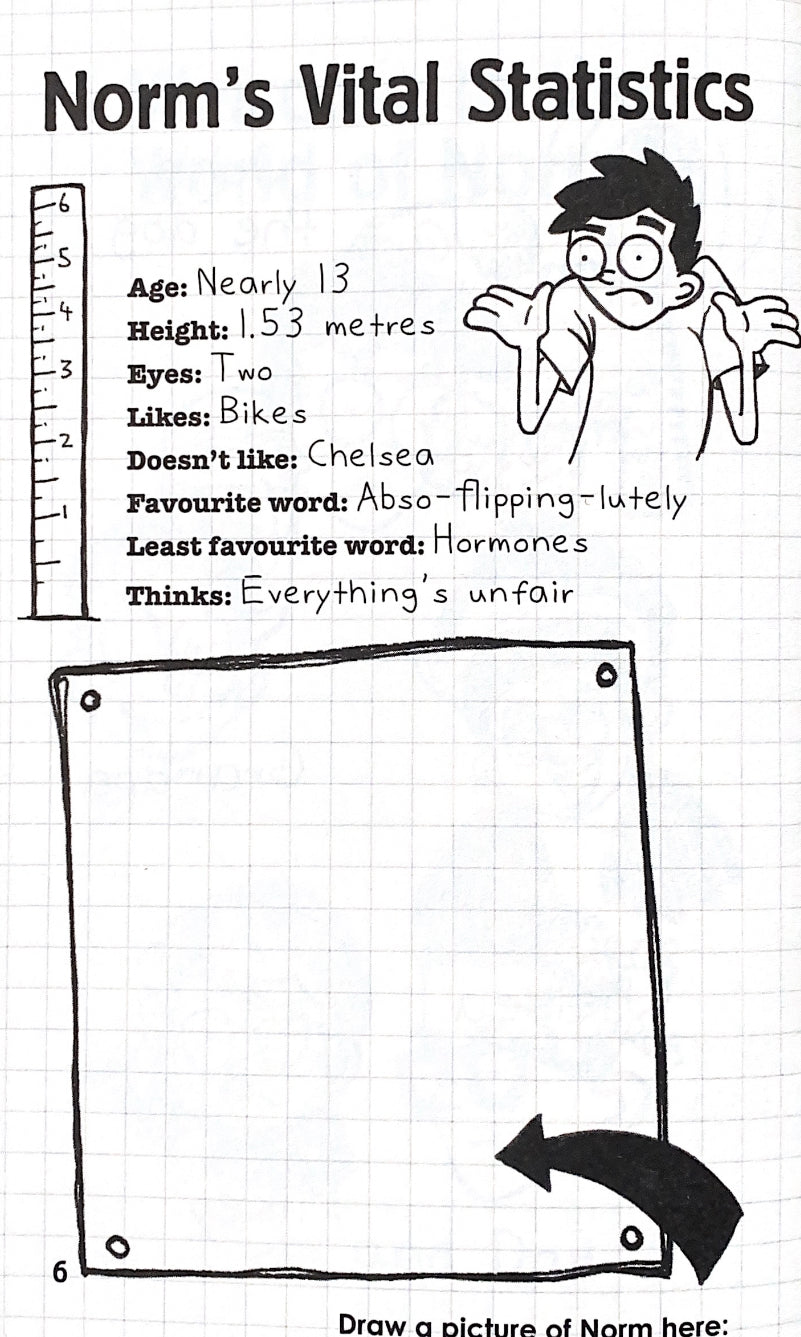 Norm's Vital Statistics
6
5
4
3
2
1
Age: Nearly 13
Height: 1.53 metres
Eyes: Two
Likes: Bikes
Doesn't like: Chelsea
Favourite word: Abso-flipping-lutely
Least favourite word: Hormones
Thinks: Everything's unfair
6
Draw a picture of Norm here: